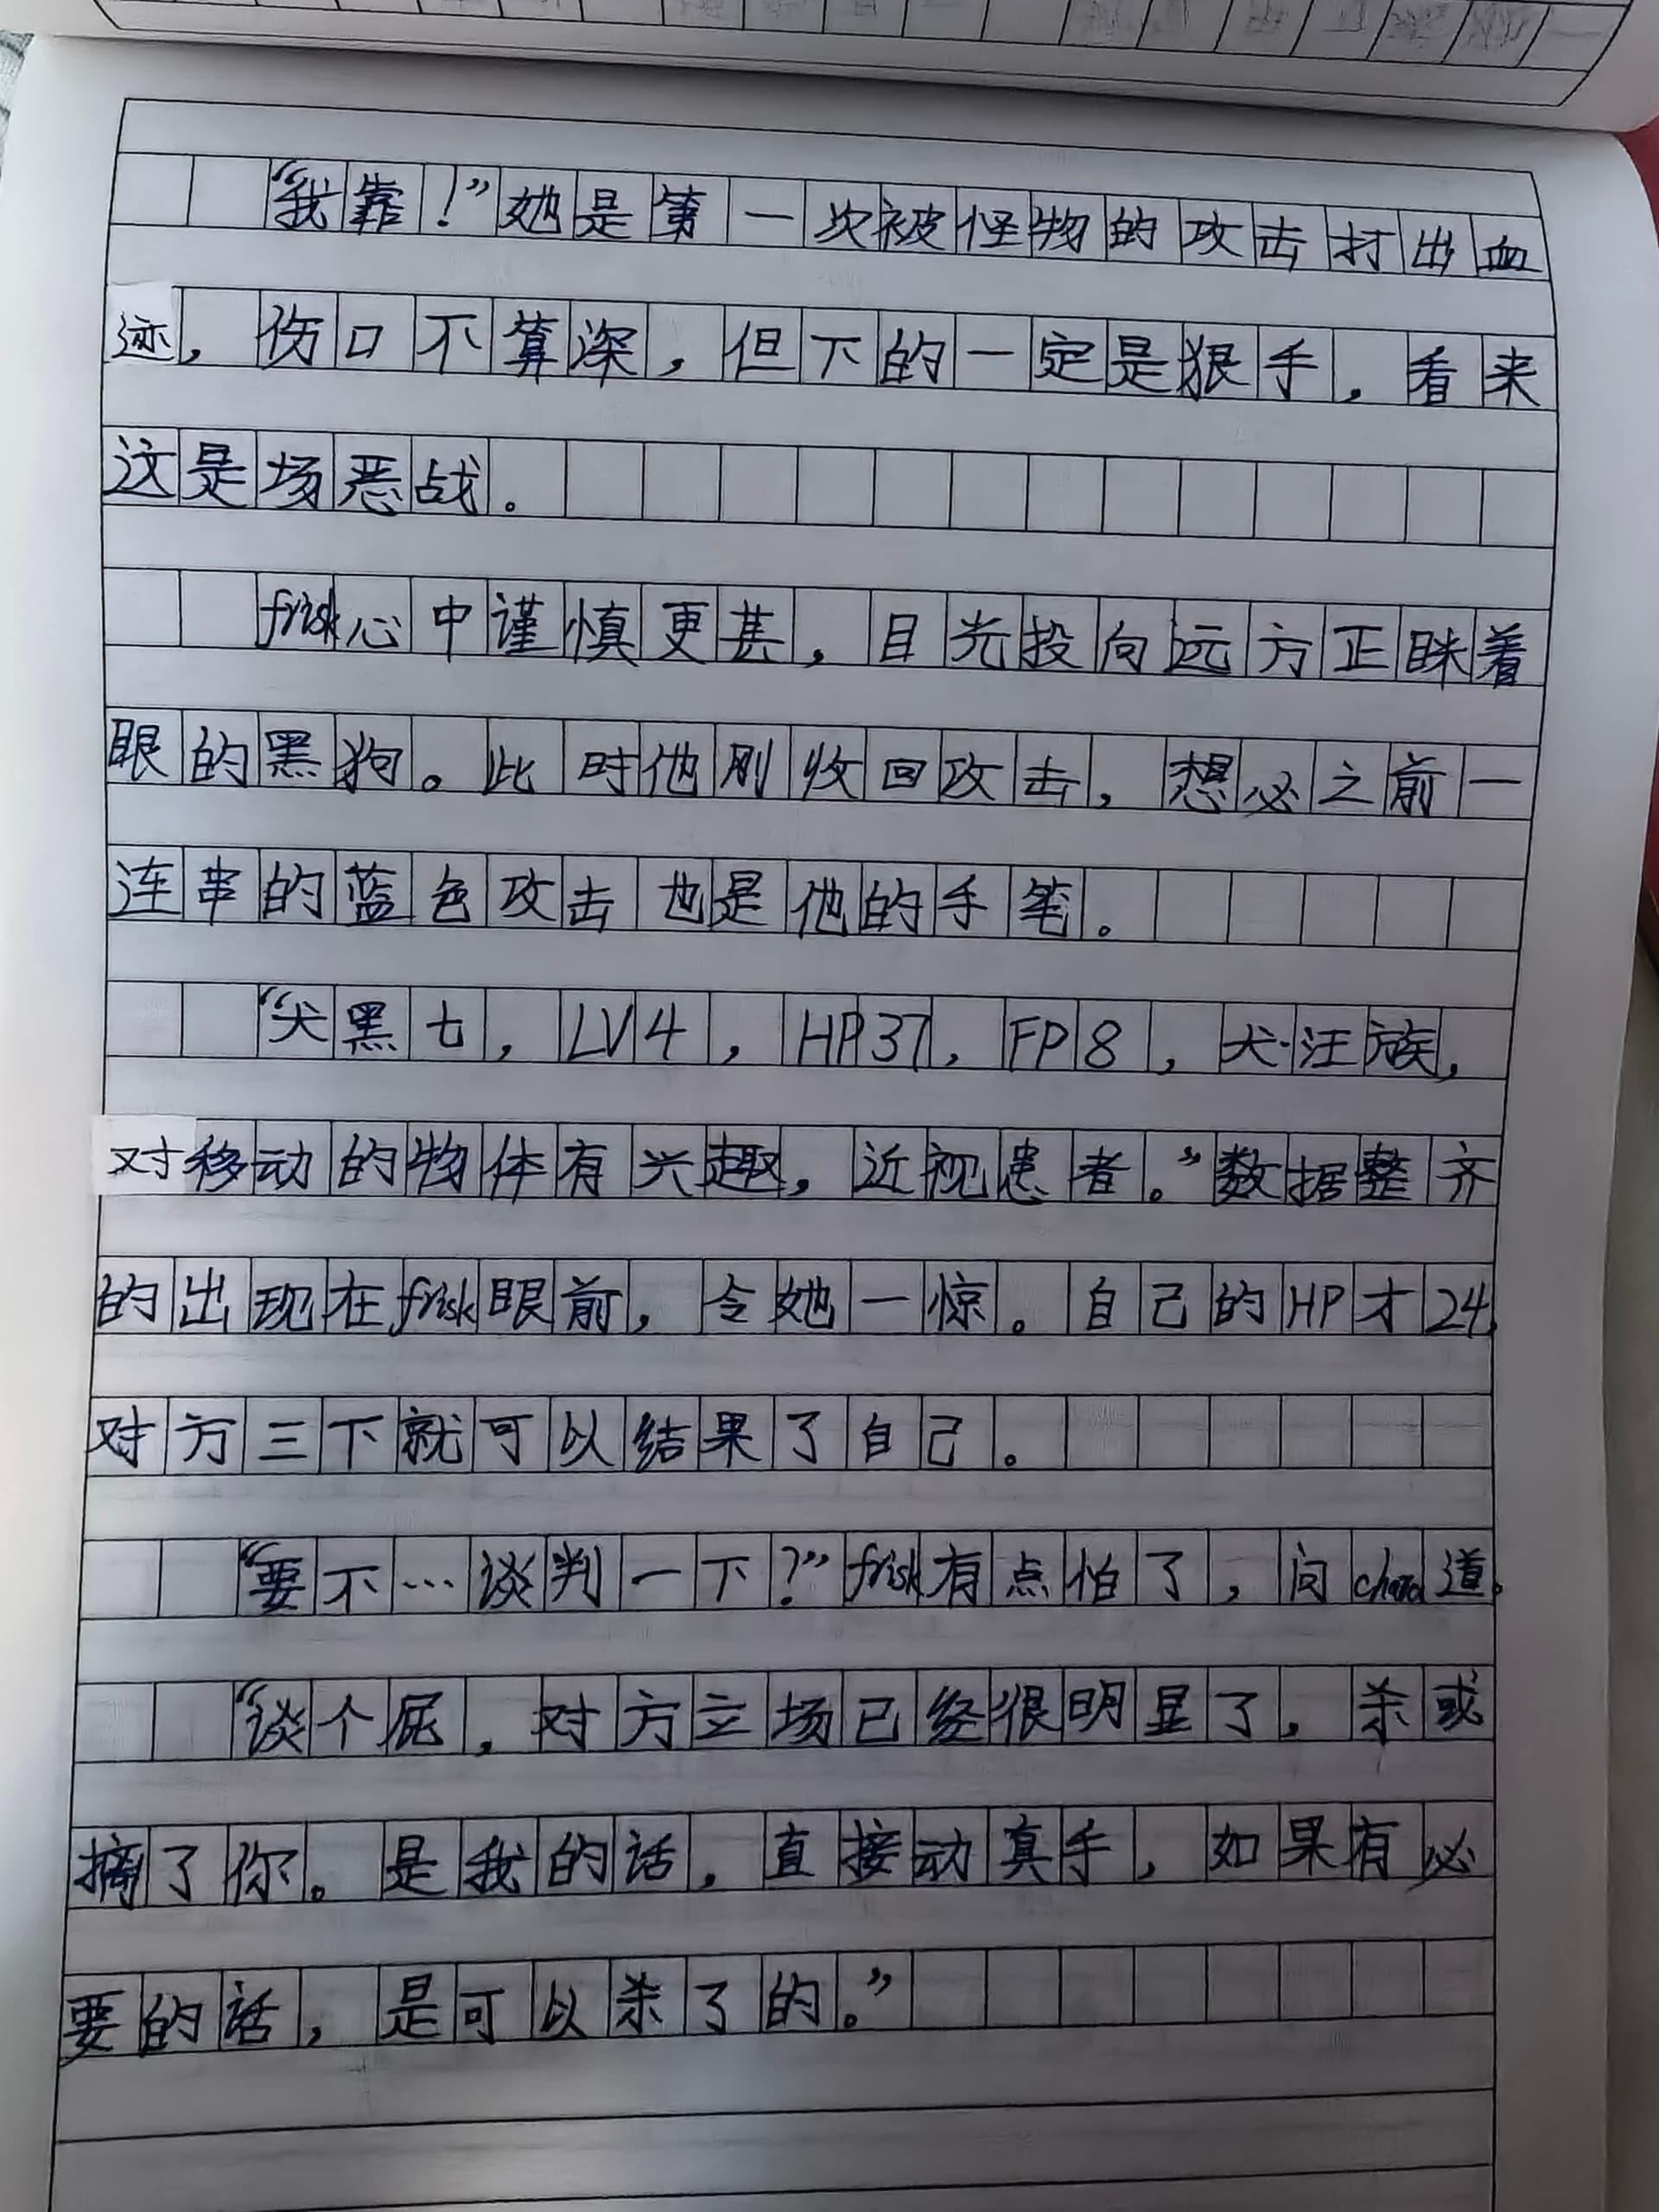 “我靠!”她是第一次被怪物的攻击打出血
迹，伤口不算深，但下的一定是狠手，看来
这是场恶战。
frisk心中谨慎更甚，目光投向远方正眯着
眼的黑狗。此时他刚收回攻击，想必之前一
连串的蓝色攻击也是他的手笔。
“犬黑七，LV4，HP37，FP8，犬·汪族，
对移动的物体有兴趣，近视患者。”数据整齐
的出现在frisk眼前，令她一惊。自己的HP才24,
对方三下就可以结果了自己。
“要不…谈判一下?”frisk有点怕了，问chara道。
“谈个屁，对方立场已经很明显了，杀或
摘了你。是我的话，直接动真手，如果有必
要的话，是可以杀了的。”